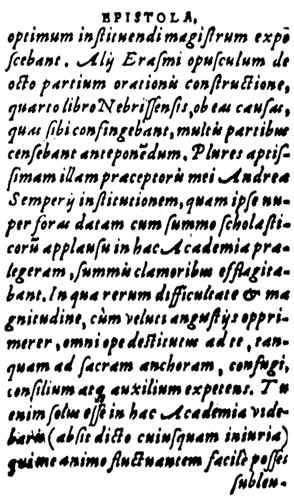 EPISTOLA,
optimum instituendi magistrum expō
scebant. Alij Erasmi opusculum de
octo partium orationis constructione,
quarto libro Nebrissensis, ob eas causas,
quas sibi confingebant, multis partibus
censebant anteponēdum. Plures aptis-
simam illam præceptoris mei Andreæ
Semperij institutionem, quam ipse nu-
per foras datam cum summo scholasti-
corū applausu in hac Academia præ-
legeram, summis clamoribus efflagita-
bant. In qua rerum difficultate & ma
gnitudine, cùm veluti angustijs oppri-
merer, omni ope destitutus ad te, tan-
quam ad sacram anchoram, confugi,
consilium atq; auxilium expetens. Tu
enim solus esse in hac Academia vide-
baris (absit dicto cuiusquam iniuria)
qui me animo fluctuantem facilè posses
sublen-